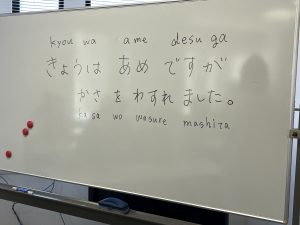 kyou wa ame desu ga
きょうは あめ ですが
かさ を わすれ ました。
kasa wo wasure mashita